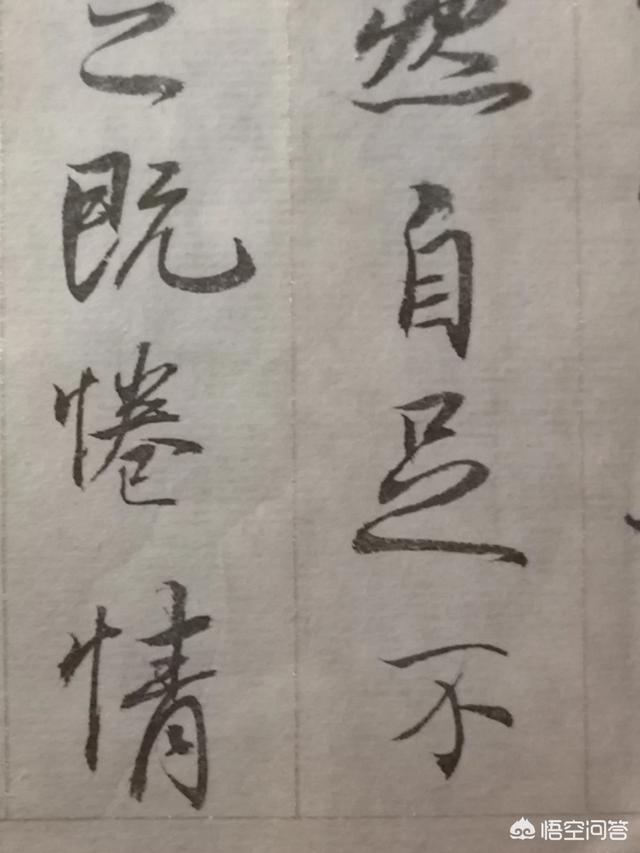 然自足不
之既惓情
悟空问答